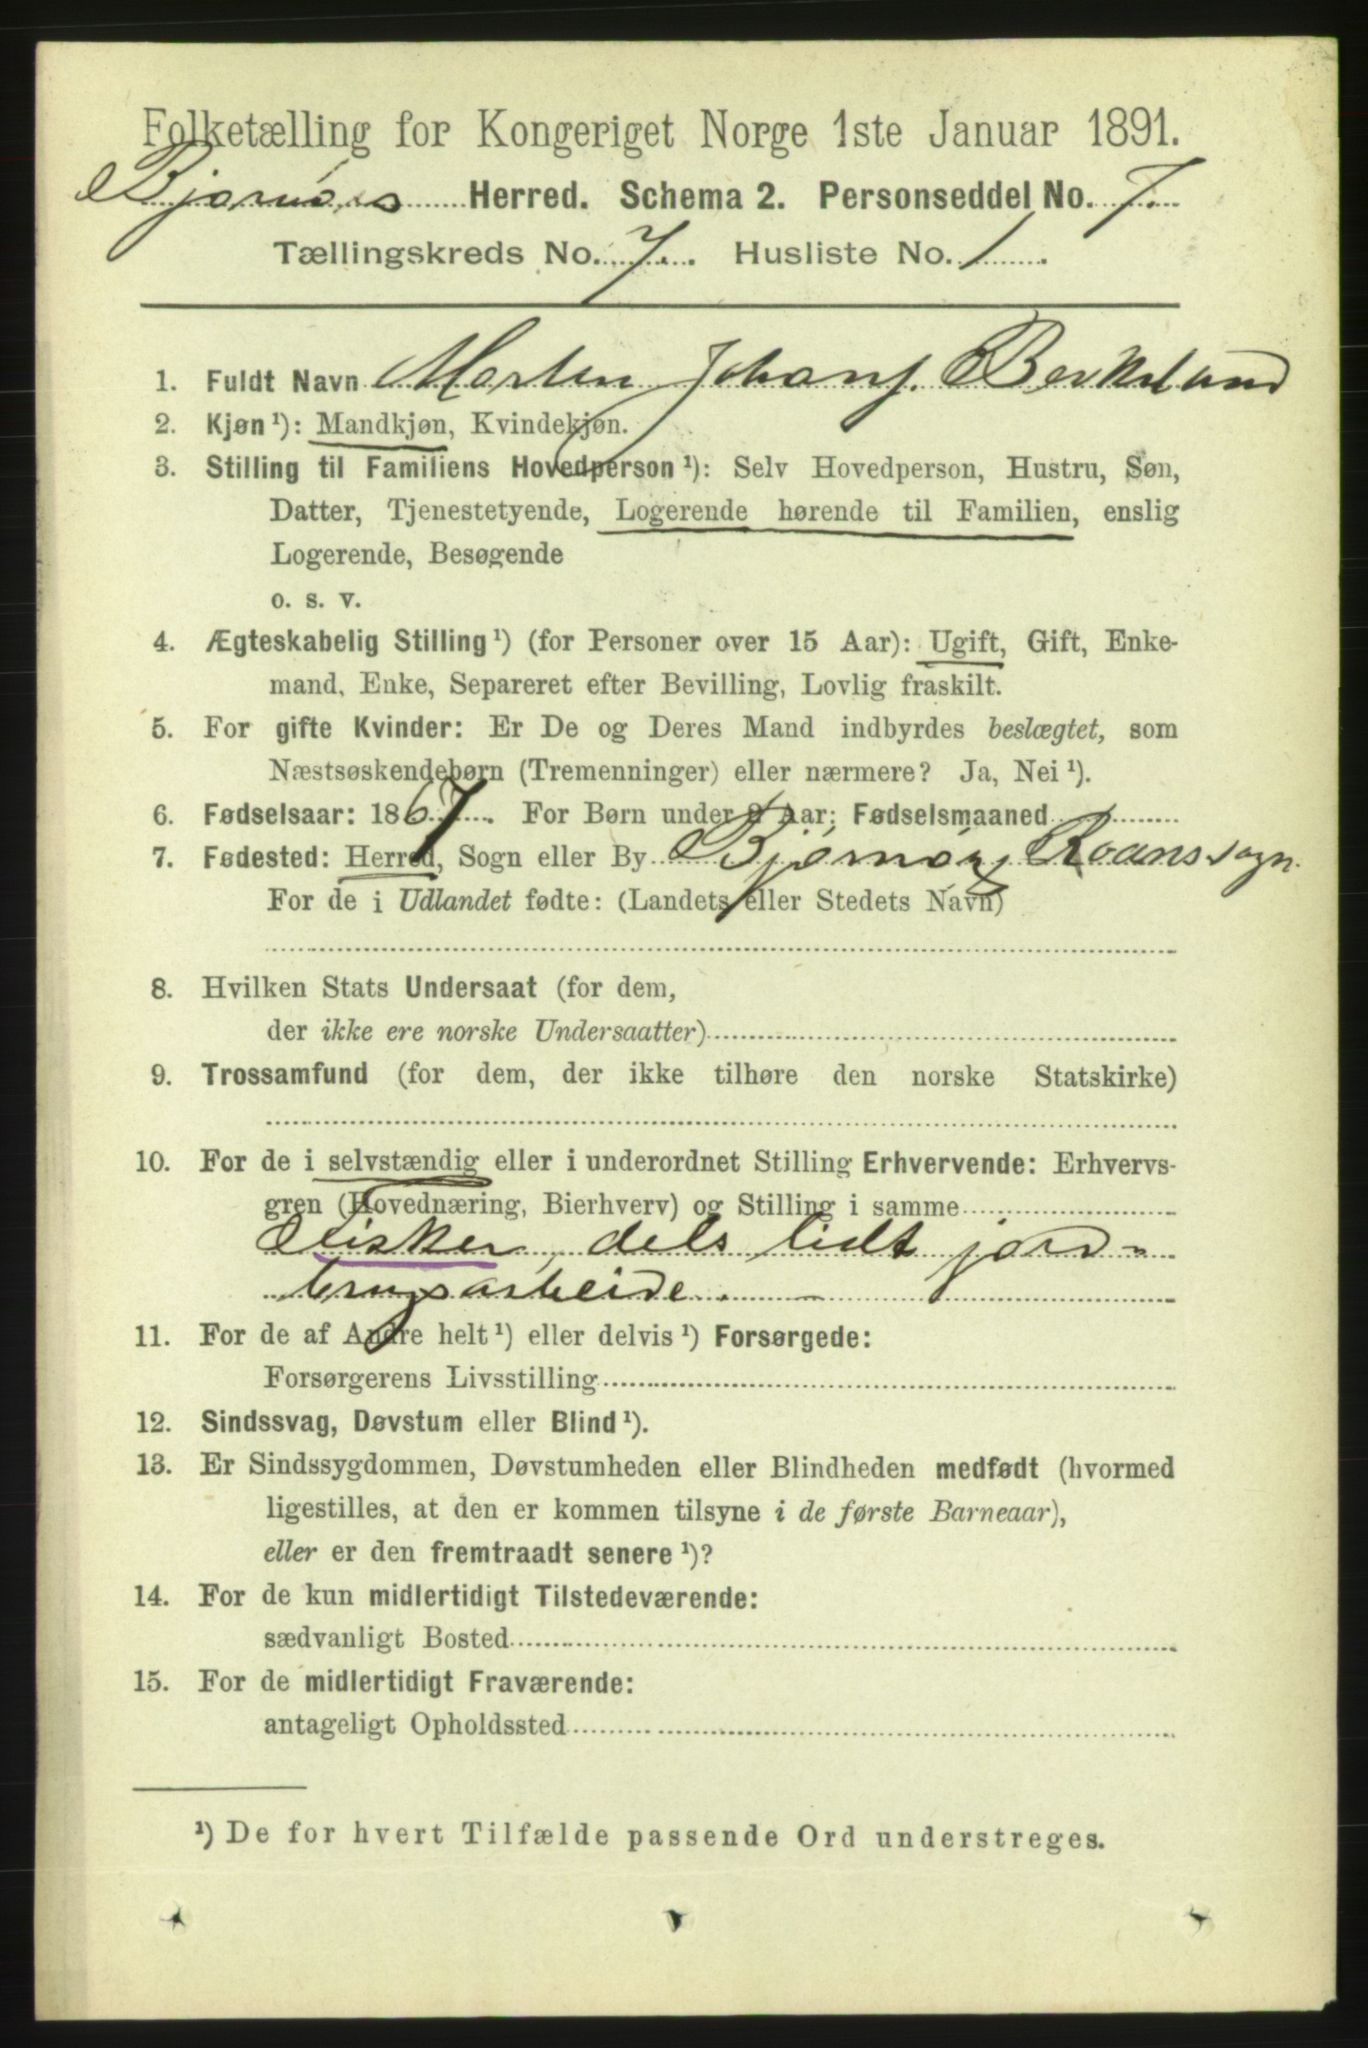 Folketælling for Kongeriget Norge 1ste Januar 1891.
Bjørnørs Herred. Schema 2. Personseddel No. 7.
Tællingskreds No. 7. Husliste No. 1
1. Fuldt Navn Morten Johans. Berkeland
2. Kjøn¹): Mandkjøn, Kvindekjøn.
3. Stilling til Familiens Hovedperson¹): Selv Hovedperson, Hustru, Søn,
Datter, Tjenestetyende, Logerende hørende til Familien, enslig
Logerende, Besøgende
o. s. v.
4. Ægteskabelig Stilling¹) (for Personer over 15 Aar): Ugift, Gift, Enke-
mand, Enke, Separeret efter Bevilling, Lovlig fraskilt.
5. For gifte Kvinder: Er De og Deres Mand indbyrdes beslægtet, som
Næstsøskendebørn (Tremenninger) eller nærmere? Ja, Nei¹).
6. Fødselsaar: 1867. For Børn under 2 Aar: Fødselsmaaned
7. Fødested: Herred, Sogn eller By Bjørnør, Roans sogn.
For de i Udlandet fødte: (Landets eller Stedets Navn)
8. Hvilken Stats Undersaat (for dem,
der ikke ere norske Undersaatter)
9. Trossamfund (for dem, der ikke tilhøre den norske Statskirke)
10. For de i selvstændig eller i underordnet Stilling Erhvervende: Erhvervs-
gren (Hovednæring, Bierhverv) og Stilling i samme
Fisker, dels lidt jord-
brugsarbeide.
11. For de af Andre helt¹) eller delvis¹) Forsørgede:
Forsørgerens Livsstilling
12. Sindssvag, Døvstum eller Blind¹).
13. Er Sindssygdommen, Døvstumheden eller Blindheden medfødt (hvormed
ligestilles, at den er kommen tilsyne i de første Barneaar),
eller er den fremtraadt senere¹)?
14. For de kun midlertidigt Tilstedeværende:
sædvanligt Bosted
15. For de midlertidigt Fraværende:
antageligt Opholdssted
¹) De for hvert Tilfælde passende Ord understreges.